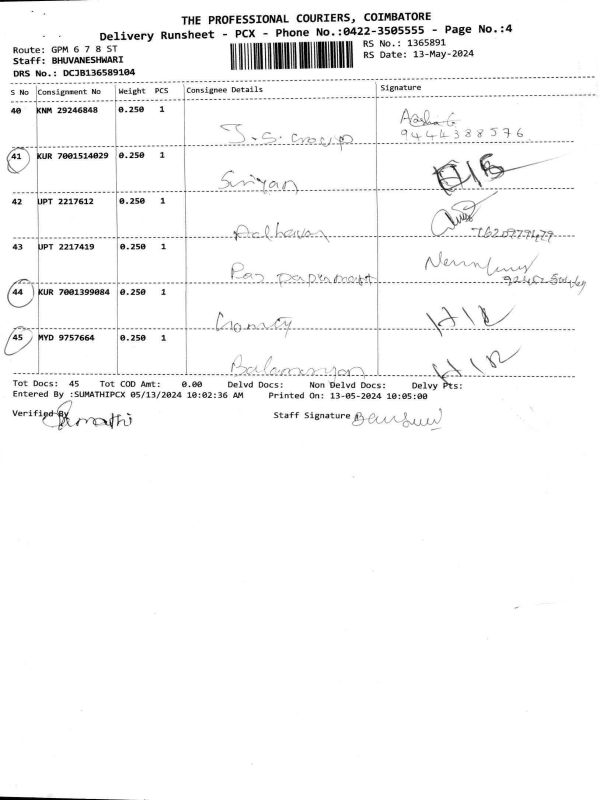 THE PROFESSIONAL COURIERS, COIMBATORE
Delivery Runsheet - PCX - Phone No.:0422-3505555 - Page No.:4
Route: GPM 6 7 8 ST
RS No.: 1365891
Staff: BHUVANESHWARI
RS Date: 13-May-2024
DRS No.: DCJB136589104
S No Consignment No Weight PCS Consignee Details Signature
40 KNM 29246848 0.250 1 J.S. Group
9444388576
41 KUR 7001514029 0.250 1 Suriyan
42 UPT 2217612 0.250 1
7620979479
43 UPT 2217419 0.250 1 Raj
44 KUR 7001399084 0.250 1 H/R
45 MYD 9757664 0.250 1 H/R
Tot Docs: 45 Tot COD Amt: 0.00 Delvd Docs: Non Delvd Docs: Delvy Pts:
Entered By :SUMATHIPCX 05/13/2024 10:02:36 AM Printed On: 13-05-2024 10:05:00
Verified By Staff Signature